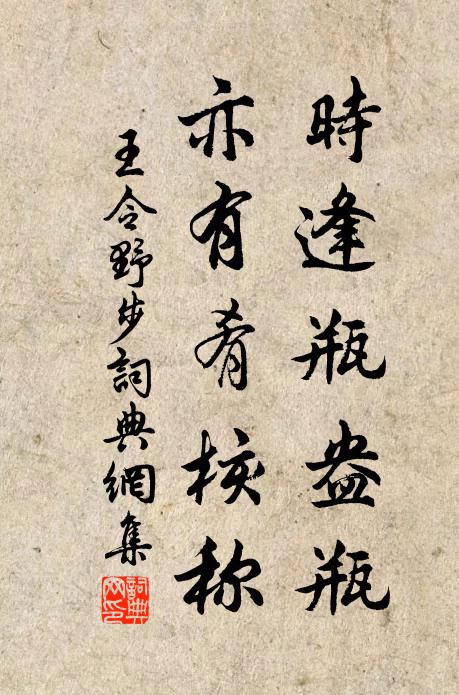 時逢瓶盎瓶
亦有肴核称
王令野步詞典網集
詞典網印